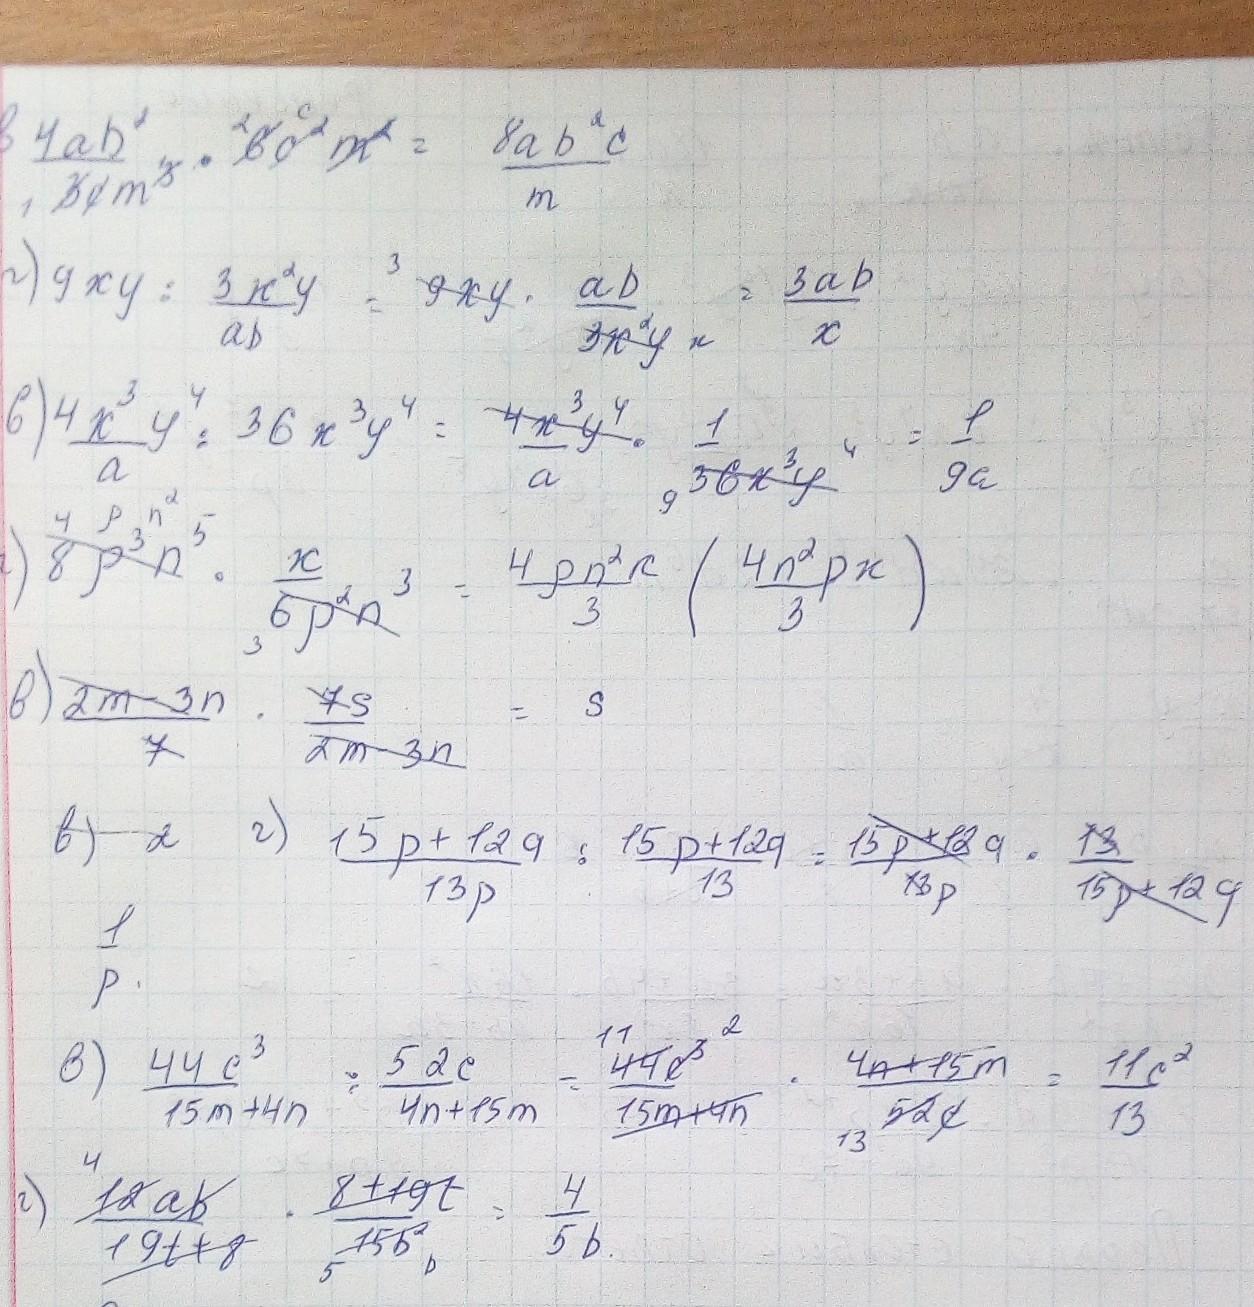 в 4ab²/3cm³ · 6c²m² = 8ab²c/m
г) 9xy : 3x²y/ab = 9xy · ab/3x²y = 3ab/x
в) 4x³y⁴/a : 36x³y⁴ = 4x³y⁴/a · 1/36x³y⁴ = 1/9a
г) 8p³n⁵ · x/6p²n³ = 4pn²x/3 (4n²px/3)
в) 2m-3n/7 · 7s/2m-3n = s
в) — 2 г) 15p+12q/13p : 15p+12q/13 = 15p+12q/13p · 13/15p+12q
1/p.
в) 44c³/15m+4n : 52c/4n+15m = 44c³/15m+4n · 4n+15m/52c = 11c²/13
г) 12ab/19t+8 · 8+19t/15b² = 4/5b.